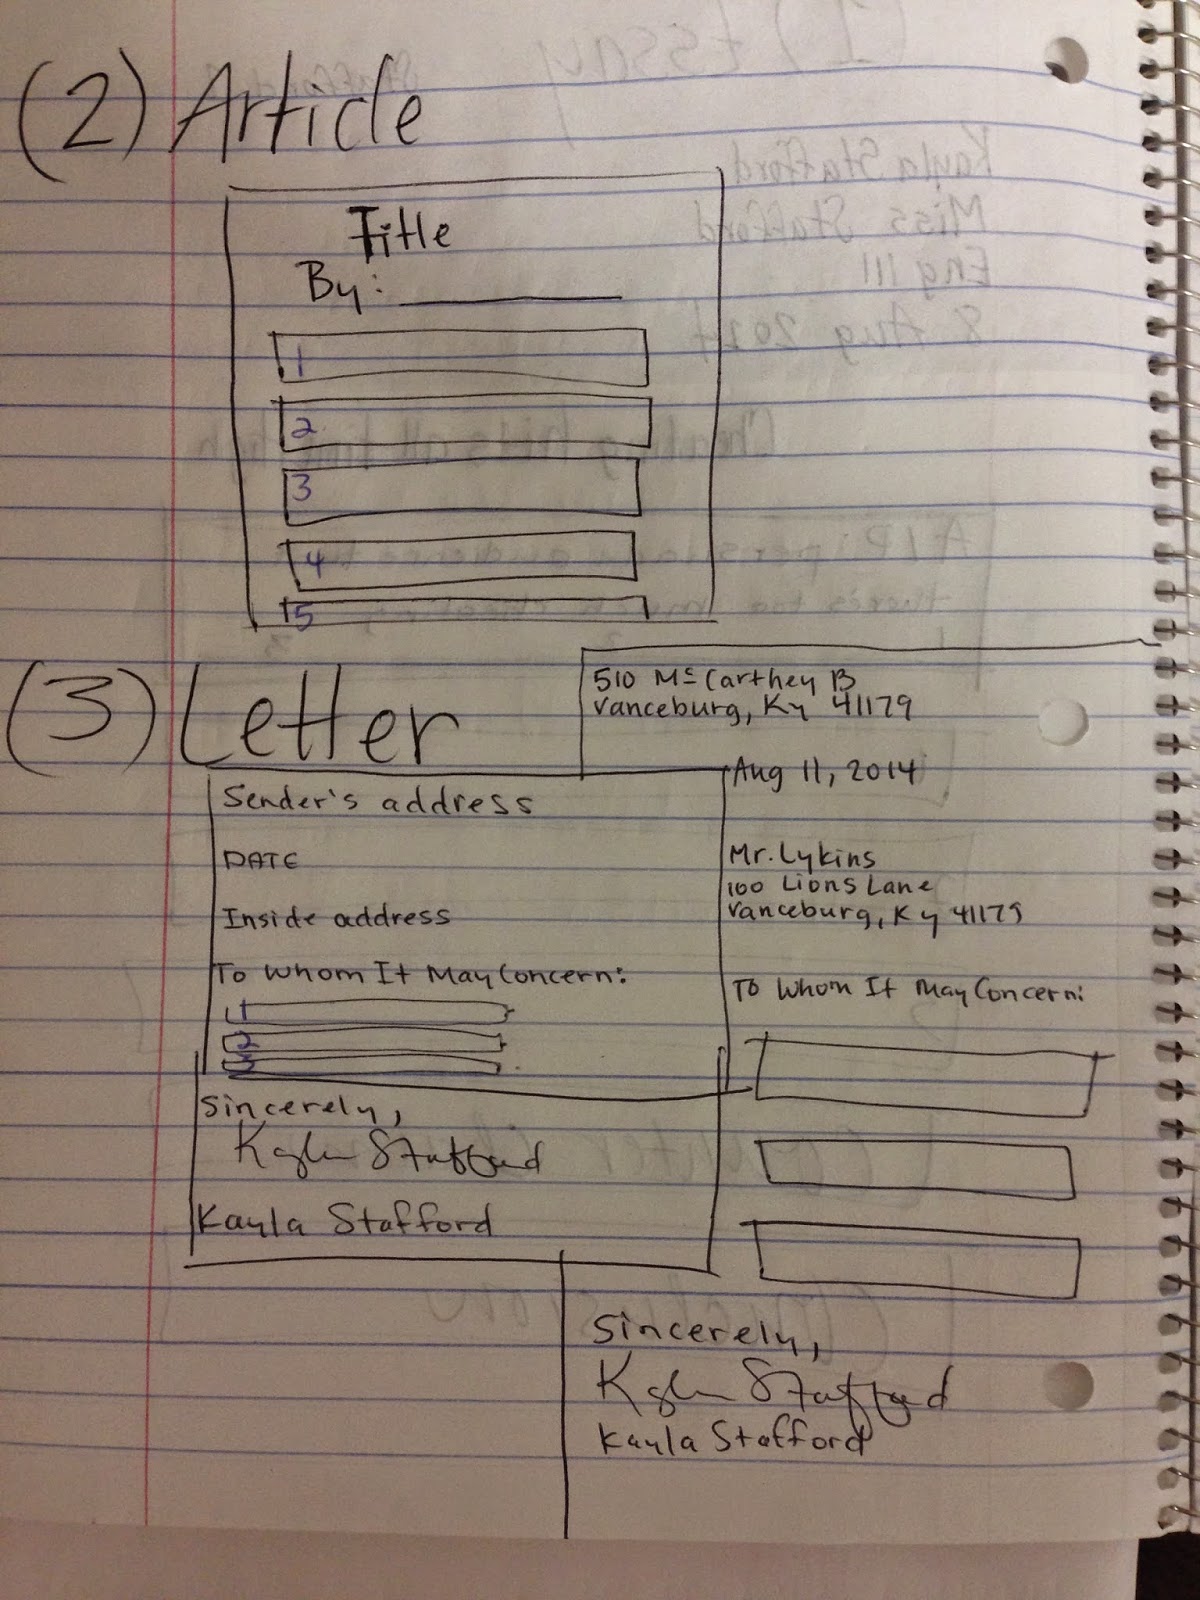 (2) Article
Title
By:
1
2
3
4
5
(3) Letter
Sender's address
DATE
Inside address
To Whom It May Concern:
1
2
3
Sincerely,
Kayla Stafford
Kayla Stafford
510 McCarthey B
Vanceburg, Ky 41179
Aug 11, 2014
Mr. Lykins
100 Lions Lane
Vanceburg, Ky 41179
To Whom It May Concern:
Sincerely,
Kayla Stafford
Kayla Stafford